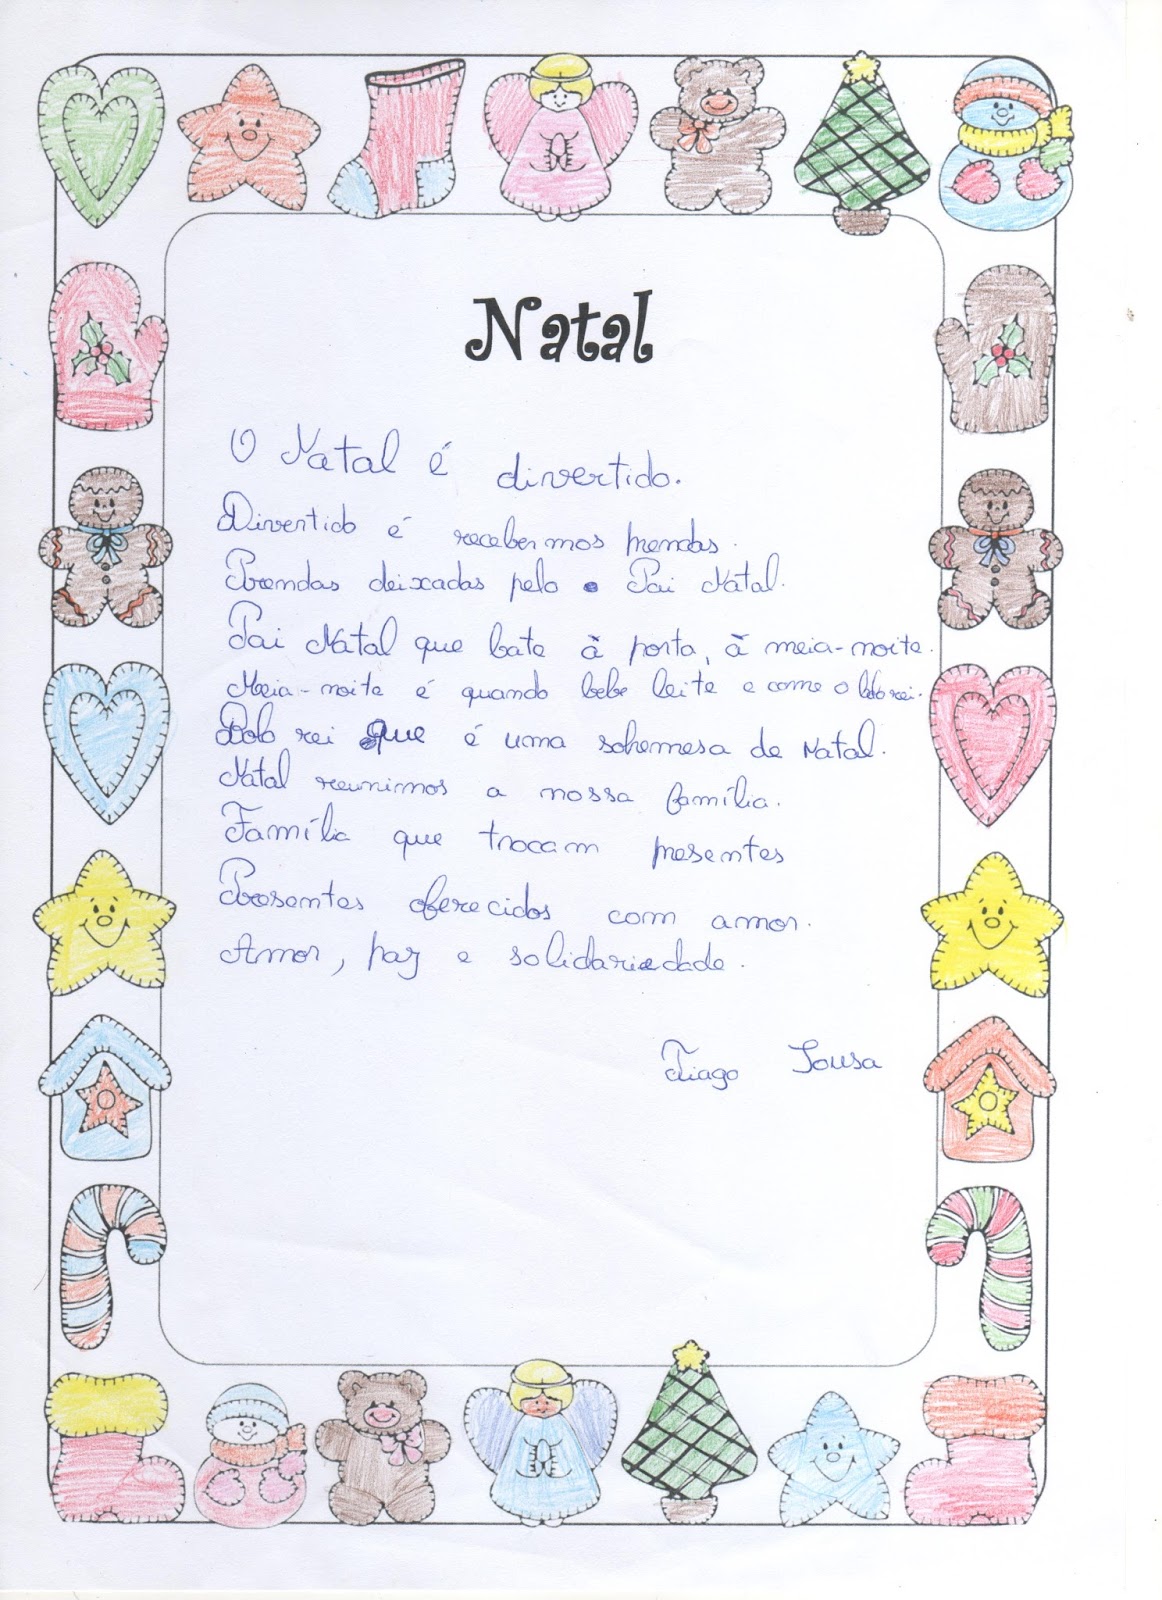 Natal
O Natal é divertido.
Divertido é recebermos prendas.
Prendas deixadas pelo Pai Natal.
Pai Natal que bate à porta, à meia-noite.
Meia-noite é quando bebe leite e come o bolo rei.
Bolo rei que é uma sobremesa de Natal.
Natal reunimos a nossa família.
Família que trocam presentes
Presentes oferecidos com amor.
Amor, paz e solidariedade.
Tiago Sousa